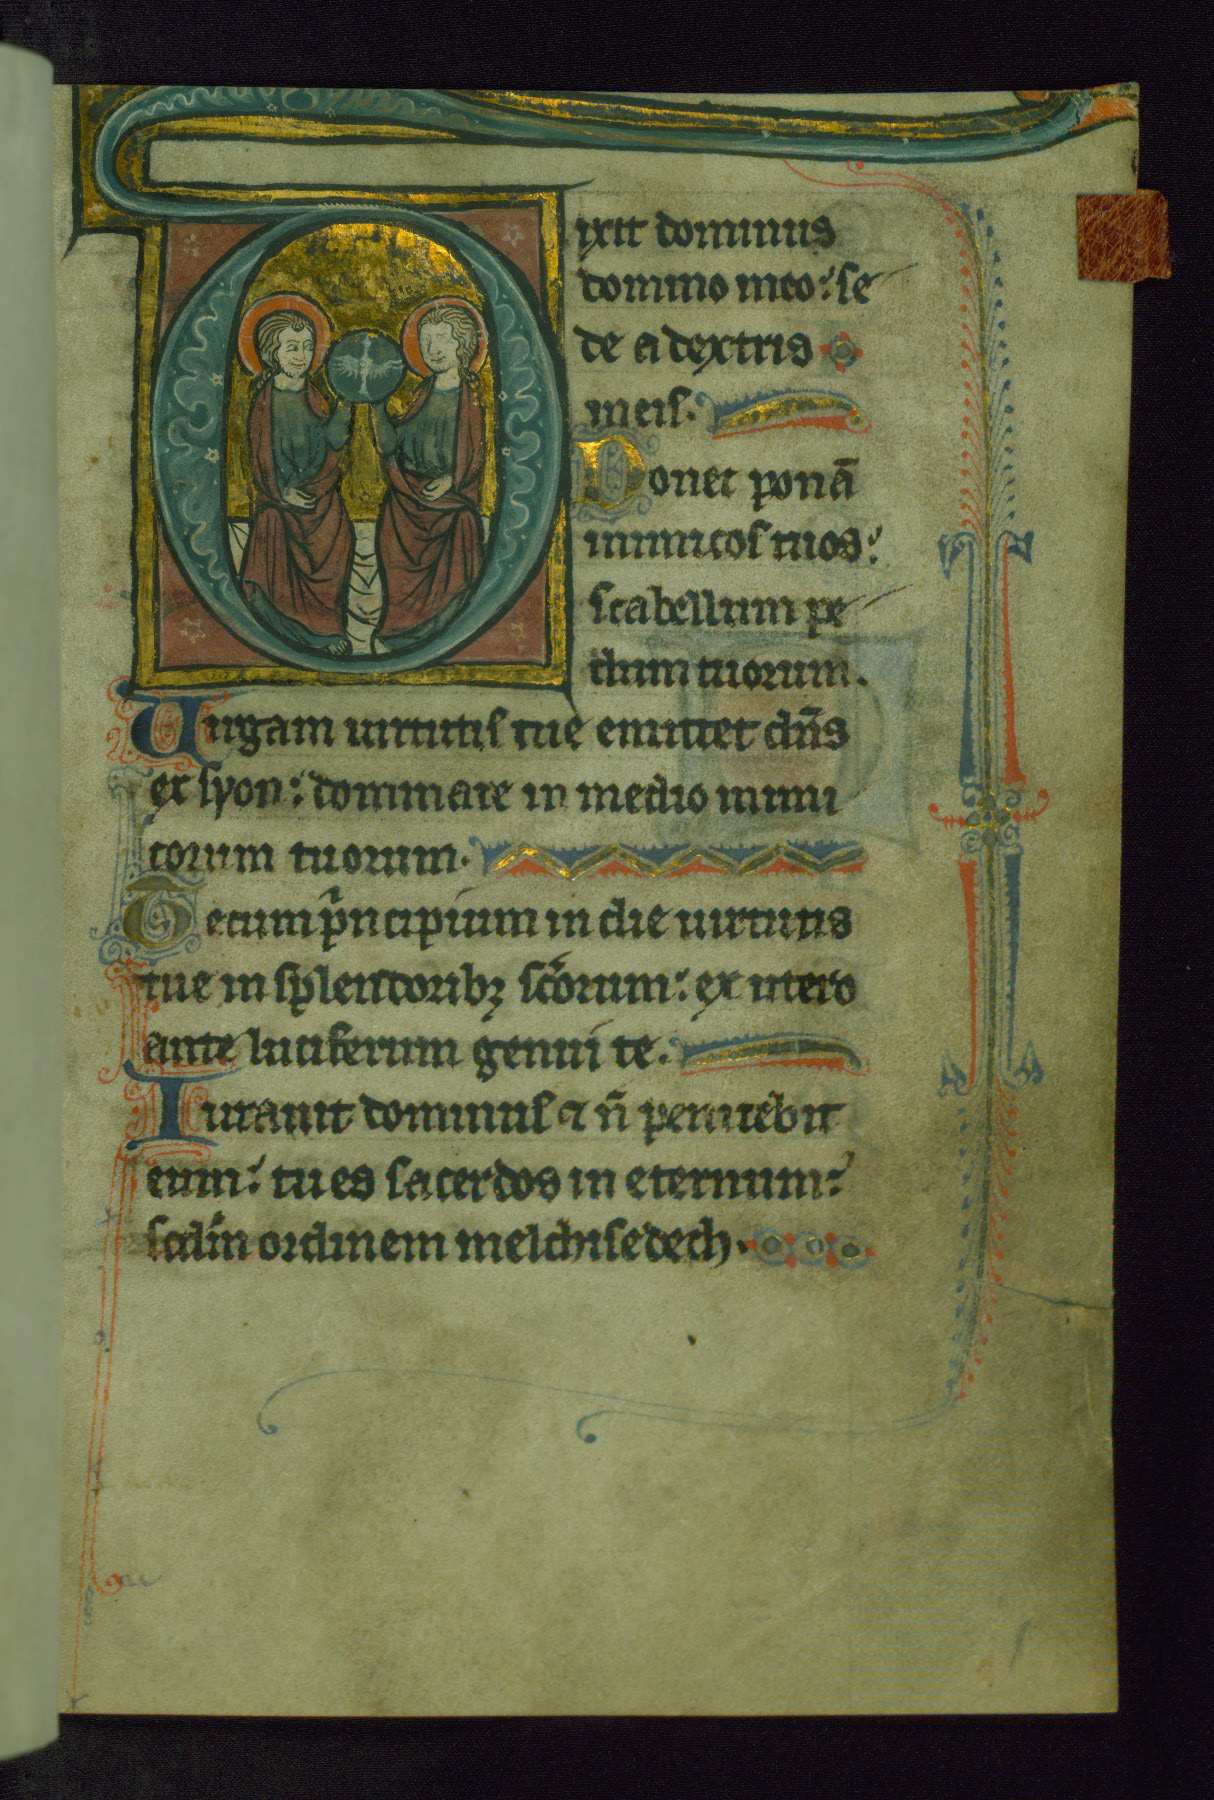 Dixit dominus
domino meo: se
de a dextris
meis.
Donec ponā
inimicos tuos:
scabellum pe
dum tuorum.
Uirgam uirtutis tue emittet dn̄s
ex syon: dominare in medio inimi
corum tuorum.
Tecum pͥncipium in die uirtutis
tue in splendoribꝫ sc̄orum: ex utero
ante luciferum genui te.
Iurauit dominus et n̄ penitebit
eum: tu es sacerdos in eternum:
scdm̄ ordinem melchisedech.